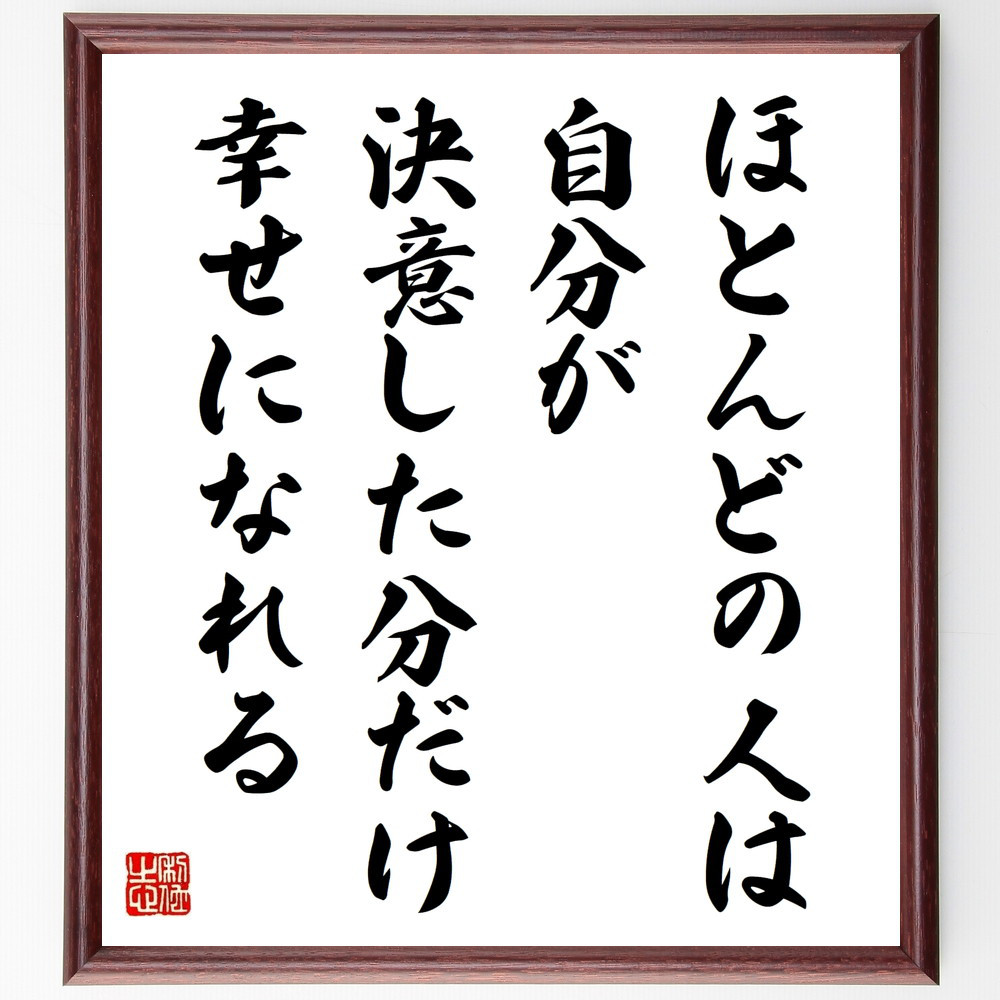 ほとんどの人は
自分が
決意した分だけ
幸せになれる